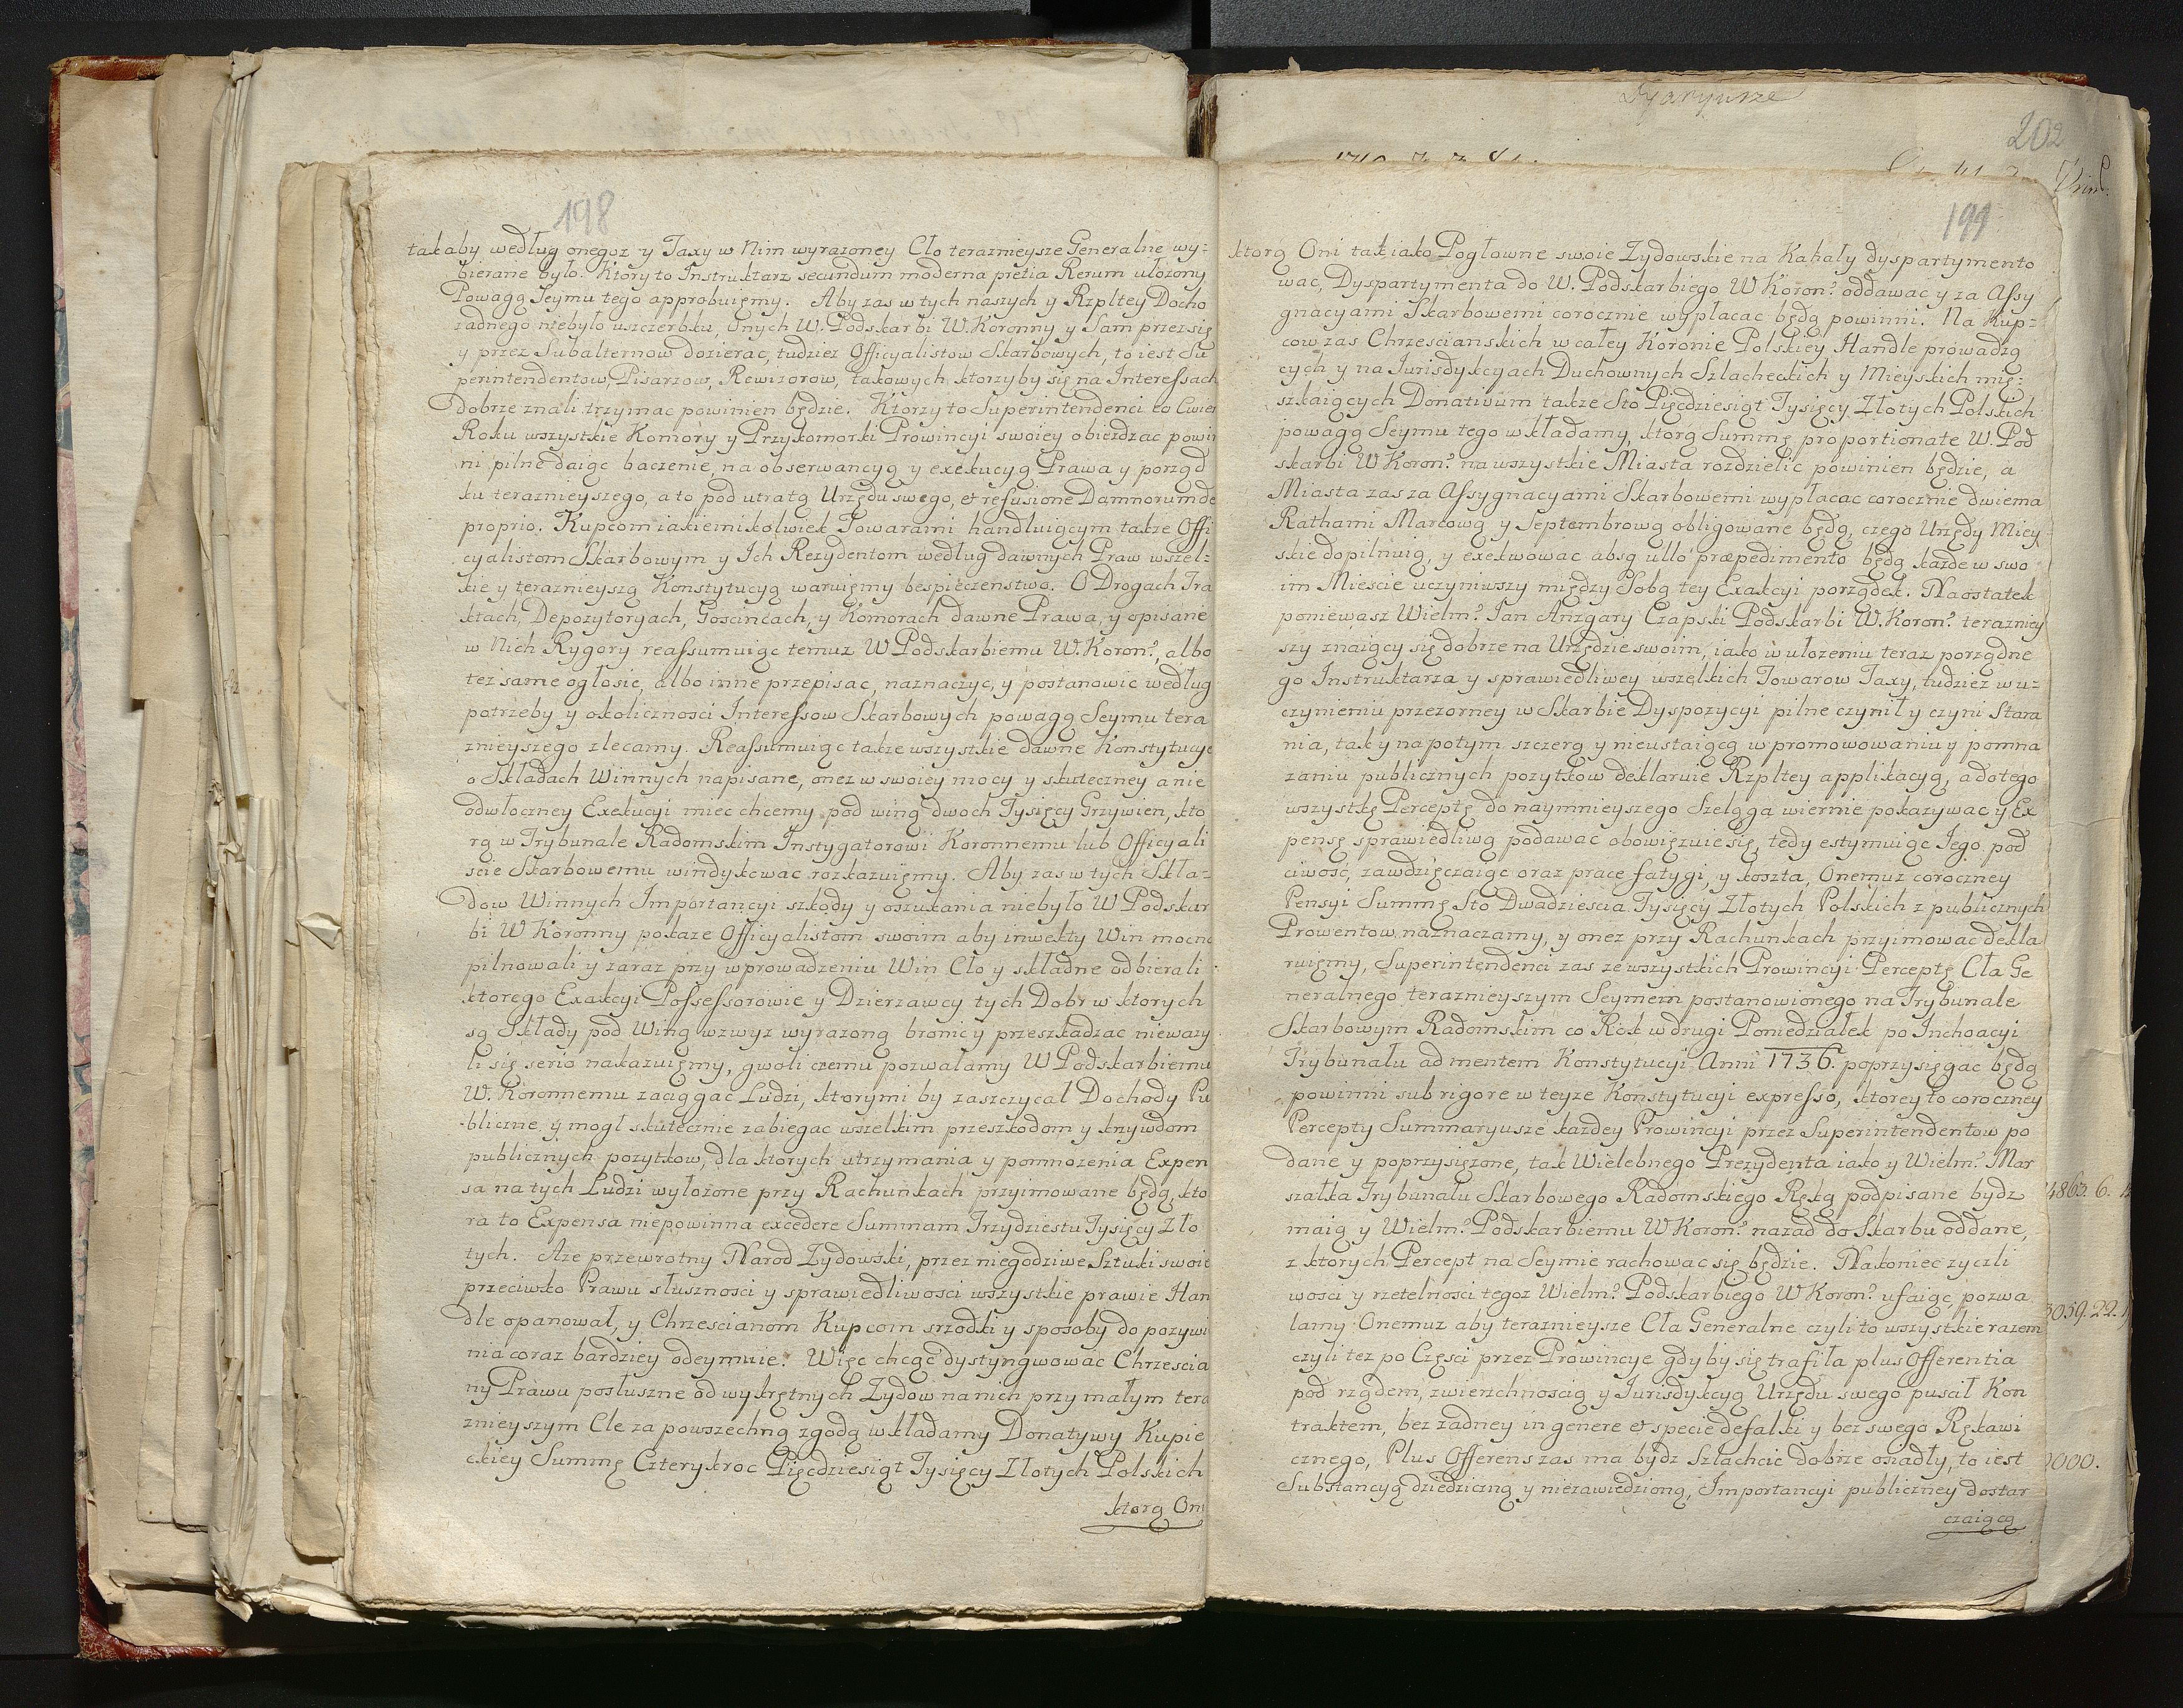 198
takaby według onegoz y Taxy w Nim wyrazoney Cło teraznieysze Generalne wy=
bierane było. Ktory to Instruktarz secundum moderna pretia Rerum ułozony
Powagą Seymu tego approbuięmy. Aby zas w tych naszych y Rzpltey Docho
zadnego niebyło uszczerbku, Onych W. Podskarbi W. Koronny y Sam przez się
y przez Subalternow dozierac, tudziez Officyalistow Skarbowych, to iest Su
perintendentow, Pisarzow, Rewizorow, takowych ktorzyby się na Interessach
dobrze znali trzymac powinien będzie. Ktorzy to Superintendenci co Cwier
Roku wszystkie Komory y Przykomorki Prowincyi swoiey obiezdzac powin
ni pilne daiąc baczenie, na obserwancyą y exekucyą Prawa y porząd
ku teraznieyszego, a to pod utratą Urzędu swego, et refusione Damnorum de
proprio. Kupcom iakiemikolwiek Towarami handluiącym takze Offi
cyalistom Skarbowym y Ich Rezydentom według dawnych Praw wszel=
kie y teraznieyszą Konstytucyą waruięmy bespieczenstwo. O Drogach Tra
ktach, Depozytoryach, Goscincach, y Komorach dawne Prawa, y opisane
w Nich Rygory reassumuiąc temuz W Podskarbiemu W. Koron?, albo
tez same ogłosic, albo inne przepisac, naznaczyc, y postanowic według
potrzeby y okolicznosci Interessow Skarbowych powagą Seymu tera
znieyszego zlecamy. Reassumuiąc takze wszystkie dawne Konstytucye
o Składach Winnych napisane, onez w swoiey mocy y skuteczney a nie
odwłoczney Exekucyi miec chcemy pod winą dwoch Tysięcy Grzywien, kto
rą w Trybunale Radomskim Instygatorowi Koronnemu lub Officyali
scie Skarbowemu windykowac rozkazuięmy. Aby zas w tych Skła=
dow Winnych Importancyi szkody y oszukania niebyło W Podskar
bi W Koronny pokaze Officyalistom swoim aby inwekty Win mocno
pilnowali y zaraz przy wprowadzeniu Win Cło y składne odbierali
ktorego Exakcyi Possessorowie y Dzierzawcy tych Dobr w ktorych
są Składy pod Winą wzwyz wyrazoną bronic y przeszkadzac niewazy
li się serio nakazuięmy, gwoli czemu pozwalamy W Podskarbiemu
W. Koronnemu zaciągac Ludzi, ktorymi by zaszczycał Dochody Pu
bliczne y mogł skutecznie zabiegac wszelkim przeszkodom y krzywdom
publicznych pozytkow, dla ktorych utrzymania y pomnozenia Expen
sa na tych Ludzi wyłozone przy Rachunkach przyimowane będą, kto
ra to Expensa niepowinna excedere Summam Trzydziestu Tysięcy Zło
tych. Aze przewrotny Narod Zydowski, przez niegodziwe Sztuki swoie
przeciwko Prawu słusznosci y sprawiedliwosci wszystkie prawie Han
dle opanował, y Chrzescianom Kupcom srzodki y sposoby do pozywi
nia coraz bardziey odeymuie. Więc chcąc dystyngwowac Chrzescia
ny Prawu posłuszne od wykrętnych Zydow na nich przy małym tera
znieyszym Cle za powszechną zgodą wkładamy Donatywy Kupie
ckiey Summę Czterykroc Pięcdziesiąt Tysięcy Złotych Polskich
ktorą Oni
Dyaryusze
202
199
ktorą Oni tak iako Pogłowne swoie Zydowskie na Kahały dyspartymento
wac, Dyspartymenta do W. Podskarbiego W Koron? oddawac y za Assy
gnacyami Skarbowemi corocznie wypłacac będą powinni. Na Kup=
cow zas Chrzescianskich w całey Koronie Polskiey Handle prowadzą
cych y na Iurisdykcyach Duchownych Szlacheckich y Mieyskich mię=
szkaiących Donativum takze Sto Pięcdziesiąt Tysięcy Złotych Polskich
powagą Seymu tego wkładamy, ktorą Summę proportionate W. Pod
skarbi W Koron? na wszystkie Miasta rozdzielic powinien będzie, a
Miasta zas za Assygnacyami Skarbowemi wypłacac corocznie dwiema
Rathami Marcową y Septembrową obligowane będą, czego Urzędy Miey
skie dopilnuią, y exekwowac absq ullo præpedimento będą kazde w swo
im Miescie uczyniwszy między Sobą tey Exakcyi porządek. Na ostatek
poniewasz Wielm? Jan Anzgary Czapski Podskarbi W. Koron? terazniey
szy znaiący się dobrze na Urzędzie swoim, iako w ułozeniu teraz porządne
go Instruktarza y sprawiedliwey wszelkich Towarow Taxy, tudziez w u=
czynieniu przezorney w Skarbie Dyspozycyi pilne czynił y czyni Stara
nia, tak y napotym szczerą y nieustaiącą w promowowaniu y pomna
zaniu publicznych pozytkow deklaruie Rzpltey applikacyą, a do tego
wszystkę Perceptę do naymnieyszego Szeląga wiernie pokazywac y Ex
pensę sprawiedliwą podawac obowięzuie się, tedy estymuiąc Jego pod
ciwosc, zawdzięczaiąc oraz prace fatygi, y koszta, Onemuz coroczney
Pensyi Summę Sto Dwadziescia Tysięcy Złotych Polskich z publicznych
Prowentow naznaczamy, y onez przy Rachunkach przyimowac dekla
ruięmy, Superintendenci zas ze wszystkich Prowincyi Perceptę Cła Ge
neralnego teraznieyszym Seymem postanowionego na Trybunale
Skarbowym Radomskim co Rok w drugi Poniedziałek po Inchoacyi
Trybunału ad mentem Konstytucyi Anni 1736. poprzysięgac będą
powinni sub rigore w teyze Konstytucyi expresso, ktorey to coroczney
Percepty Summaryusze kazdey Prowincyi przez Superintendentow po
dane y poprzysięzone, tak Wielebnego Prezydenta iako y Wielm? Mar
szałka Trybunału Skarbowego Radomskiego Ręką podpisane bydz
maią y Wielm? Podskarbiemu W Koron? nazad do Skarbu oddane,
z ktorych Percept na Seymie rachowac się będzie. Nakoniec zyczli
wosci y rzetelnosci tegoz Wielm? Podskarbiego W Koron? ufaiąc pozwa
lamy Onemuz aby teraznieysze Cła Generalne czyli to wszystkie razem
czyli tez po Częsci przez Prowincye gdyby się trafiła plus Offerentia
pod rządem, zwierzchnoscią y Iurisdykcyą Urzędu swego puscił Kon
traktem, bez zadney in genere et specie defalki y bez swego Rękawi
cznego, Plus Offerens zas ma bydz Szlachcic dobrze osiadły, to iest
Substancyą dziedziczną y niezawiedzioną, Importancyi publiczney dostar
czaiącą
4863. 6.
3059. 22.
000.